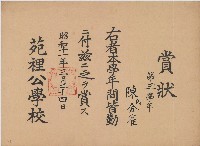 賞狀
第三學年
陳氏
右者本學年間皆勤
ニ付茲ニ之ヲ賞ス
昭和十一年三月二十四日
苑裡公學校